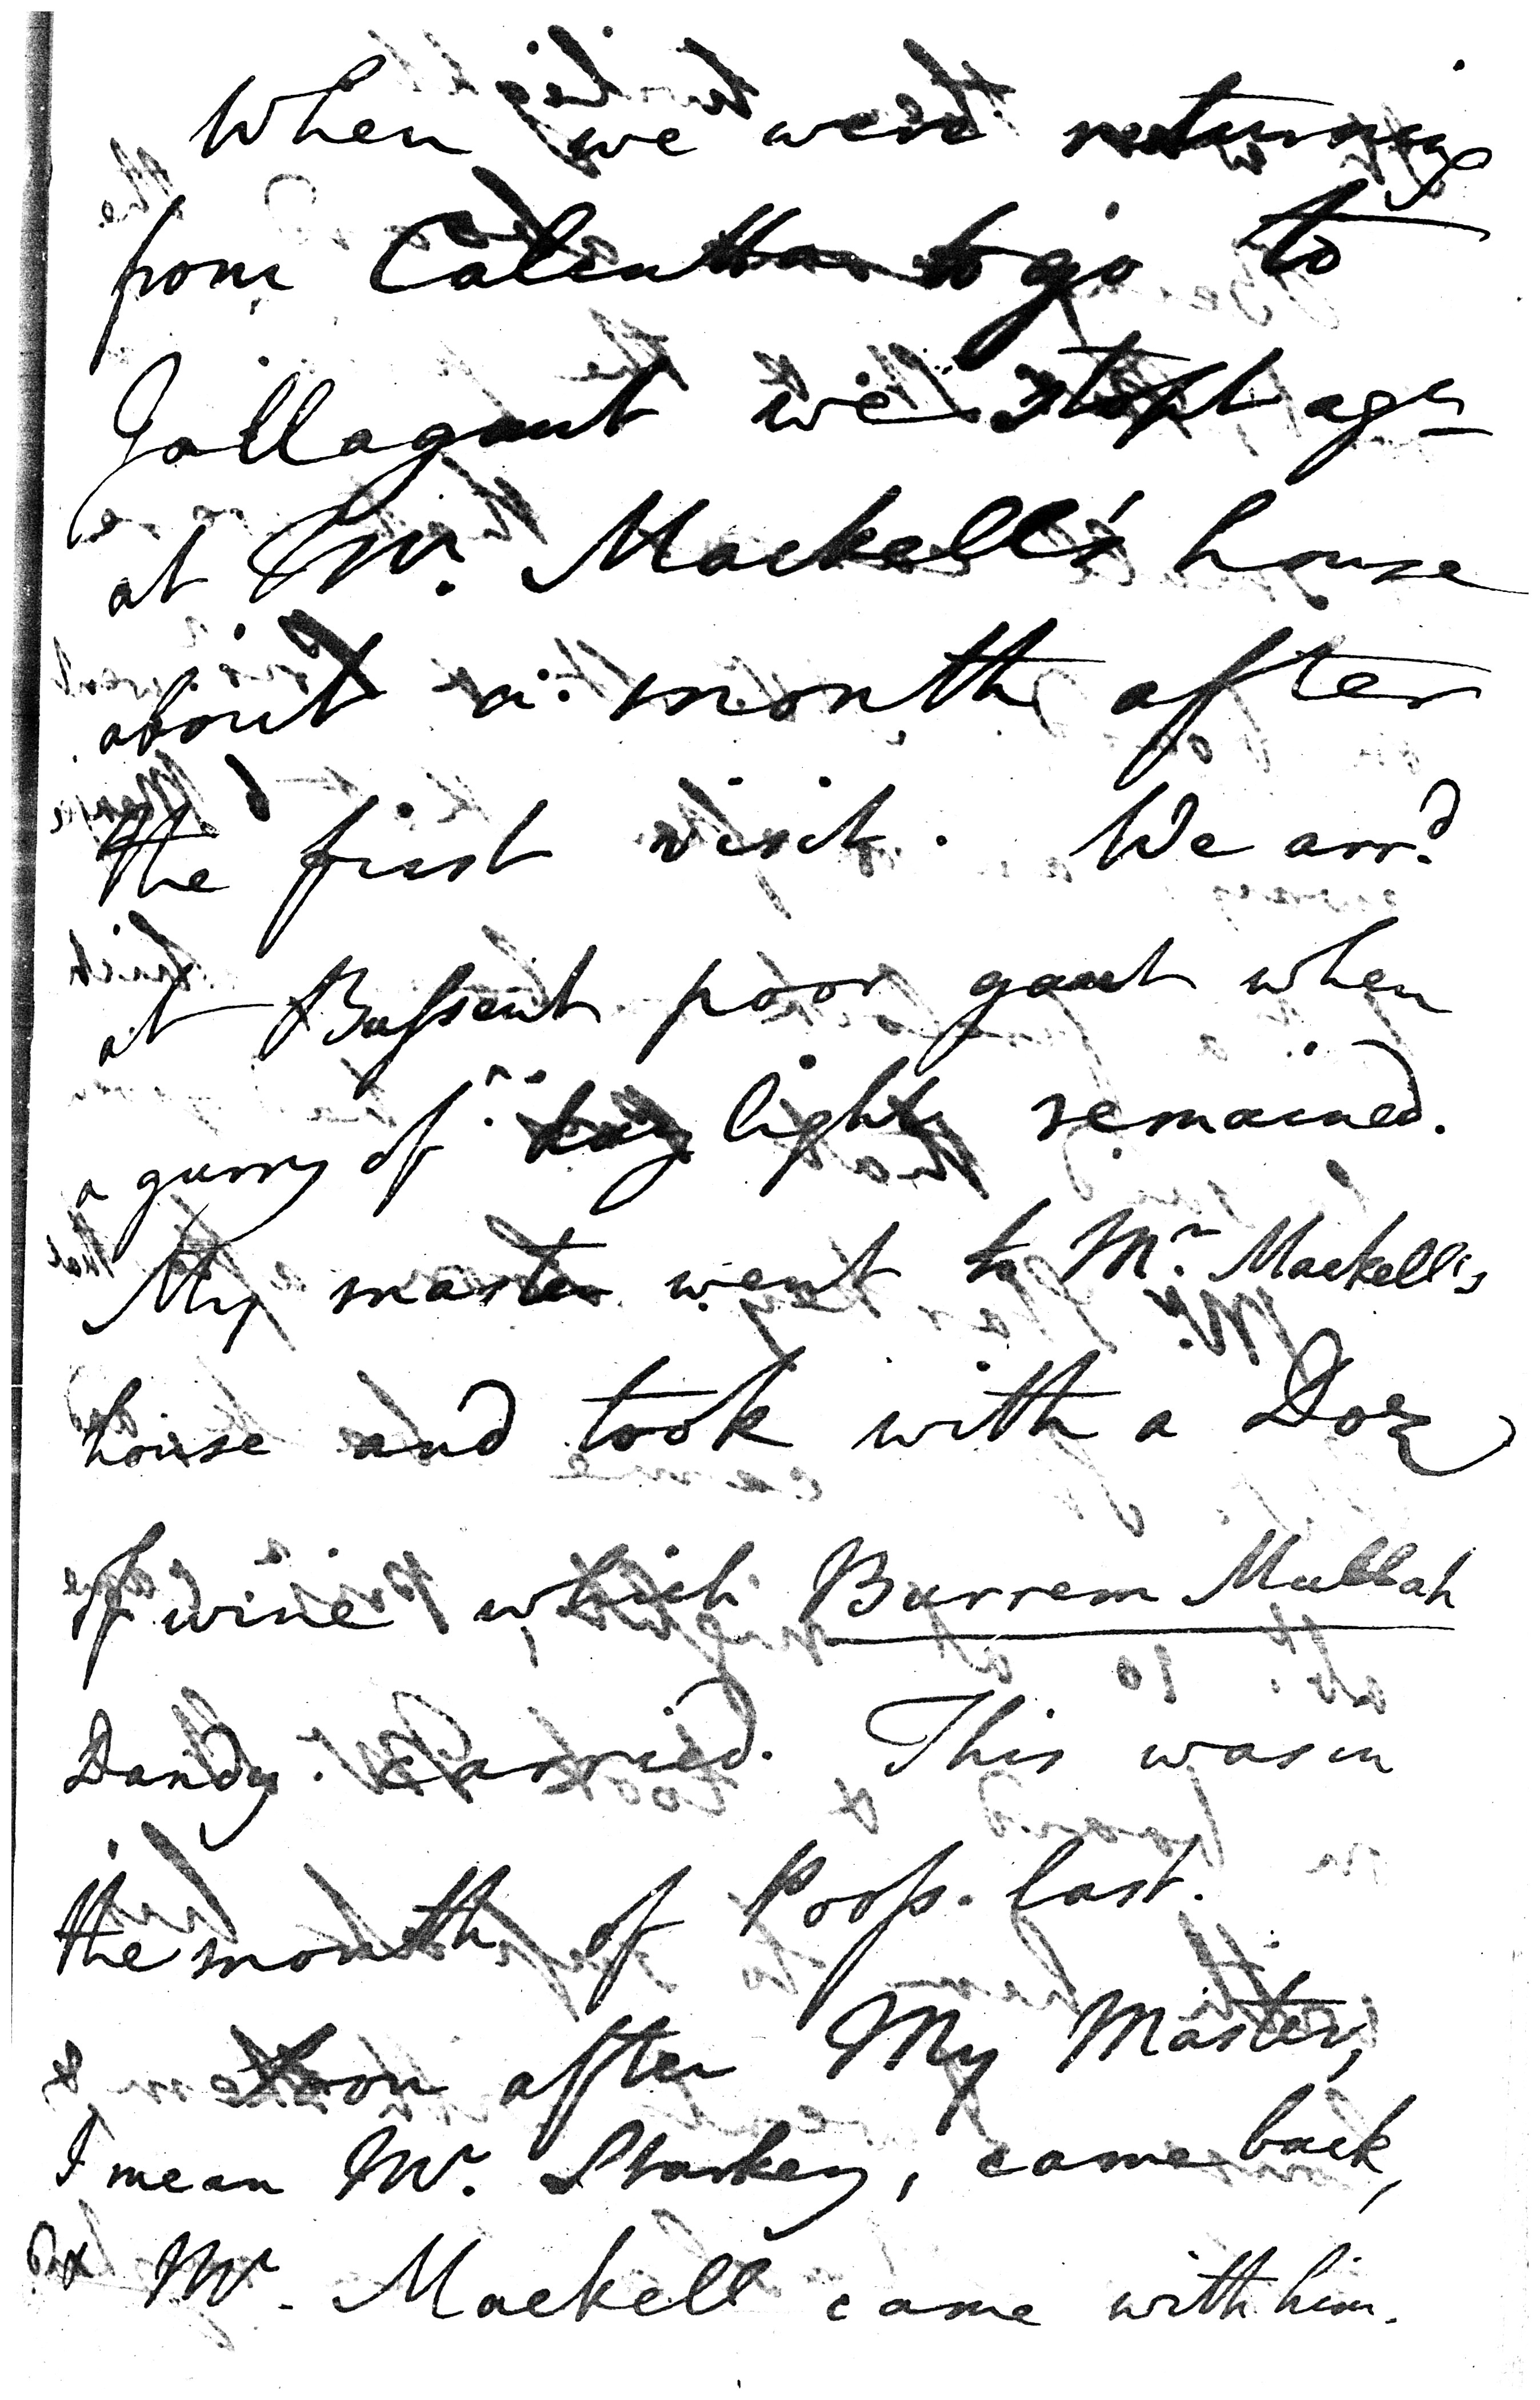 When we were returning
from Calcutta to go to
Jallagaut we stopt agn
at Mr. Mackell's house
about a month after
the first visit. We arrd
at Bussent poor gaut when
a gurry of day light remained.
My master went to Mr. Mackell's
house and took with a Doz
of wine which Burrem Mullah
Dandy carried. This was in
the month of Poos. last.
soon after My Master,
I mean Mr. Starkey, came back,
& Mr. Mackell came with him.